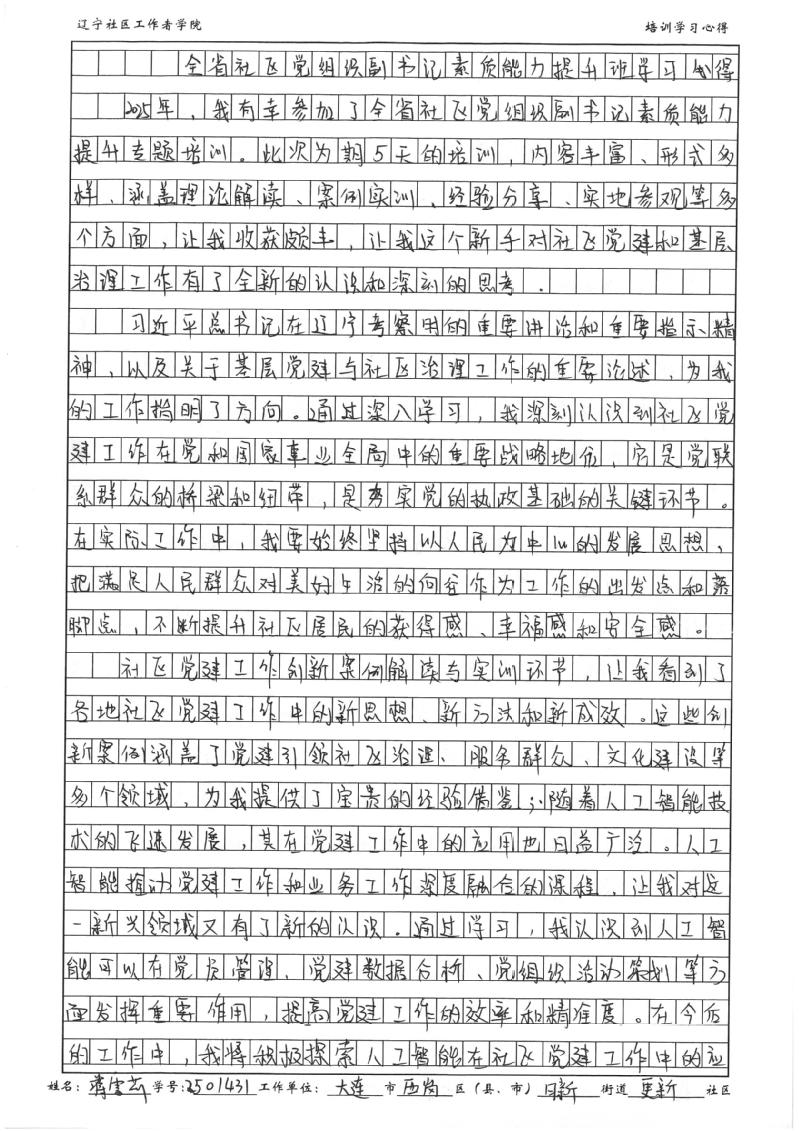 辽宁社区工作者学院 培训学习心得
全省社区党组织副书记素质能力提升班学习心得
2025年，我有幸参加了全省社区党组织副书记素质能力
提升专题培训。此次为期5天的培训，内容丰富、形式多
样、涵盖理论解读、案例实训、经验分享、实地参观等多
个方面，让我收获颇丰，让我这个新手对社区党建和基层
治理工作有了全新的认识和深刻的思考．
习近平总书记在辽宁考察时的重要讲话和重要指示精
神，以及关于基层党建与社区治理工作的重要论述，为我
的工作指明了方向。通过深入学习，我深刻认识到社区党
建工作在党和国家事业全局中的重要战略地位，它是党联
系群众的桥梁和纽带，是夯实党的执政基础的关键环节。
在实际工作中，我要始终坚持以人民为中心的发展思想，
把满足人民群众对美好生活的向往作为工作的出发点和落
脚点，不断提升社区居民的获得感、幸福感和安全感。
社区党建工作创新案例解读与实训环节，让我看到了
各地社区党建工作中的新思想、新方法和新成效。这些创
新案例涵盖了党建引领社区治理、服务群众、文化建设等
多个领域，为我提供了宝贵的经验借鉴；随着人工智能技
术的飞速发展，其在党建工作中的应用也日益广泛。人工
智能推动党建工作和业务工作深度融合的课程，让我对这
一新兴领域又有了新的认识。通过学习，我认识到人工智
能可以在党员管理、党建数据分析、党组织活动策划等方
面发挥重要作用，提高党建工作的效率和精准度。在今后
的工作中，我将积极探索人工智能在社区党建工作中的应
姓名： 学号:2501431 工作单位： 大连 市 西岗 区（县、市） 日新 街道 更新 社区